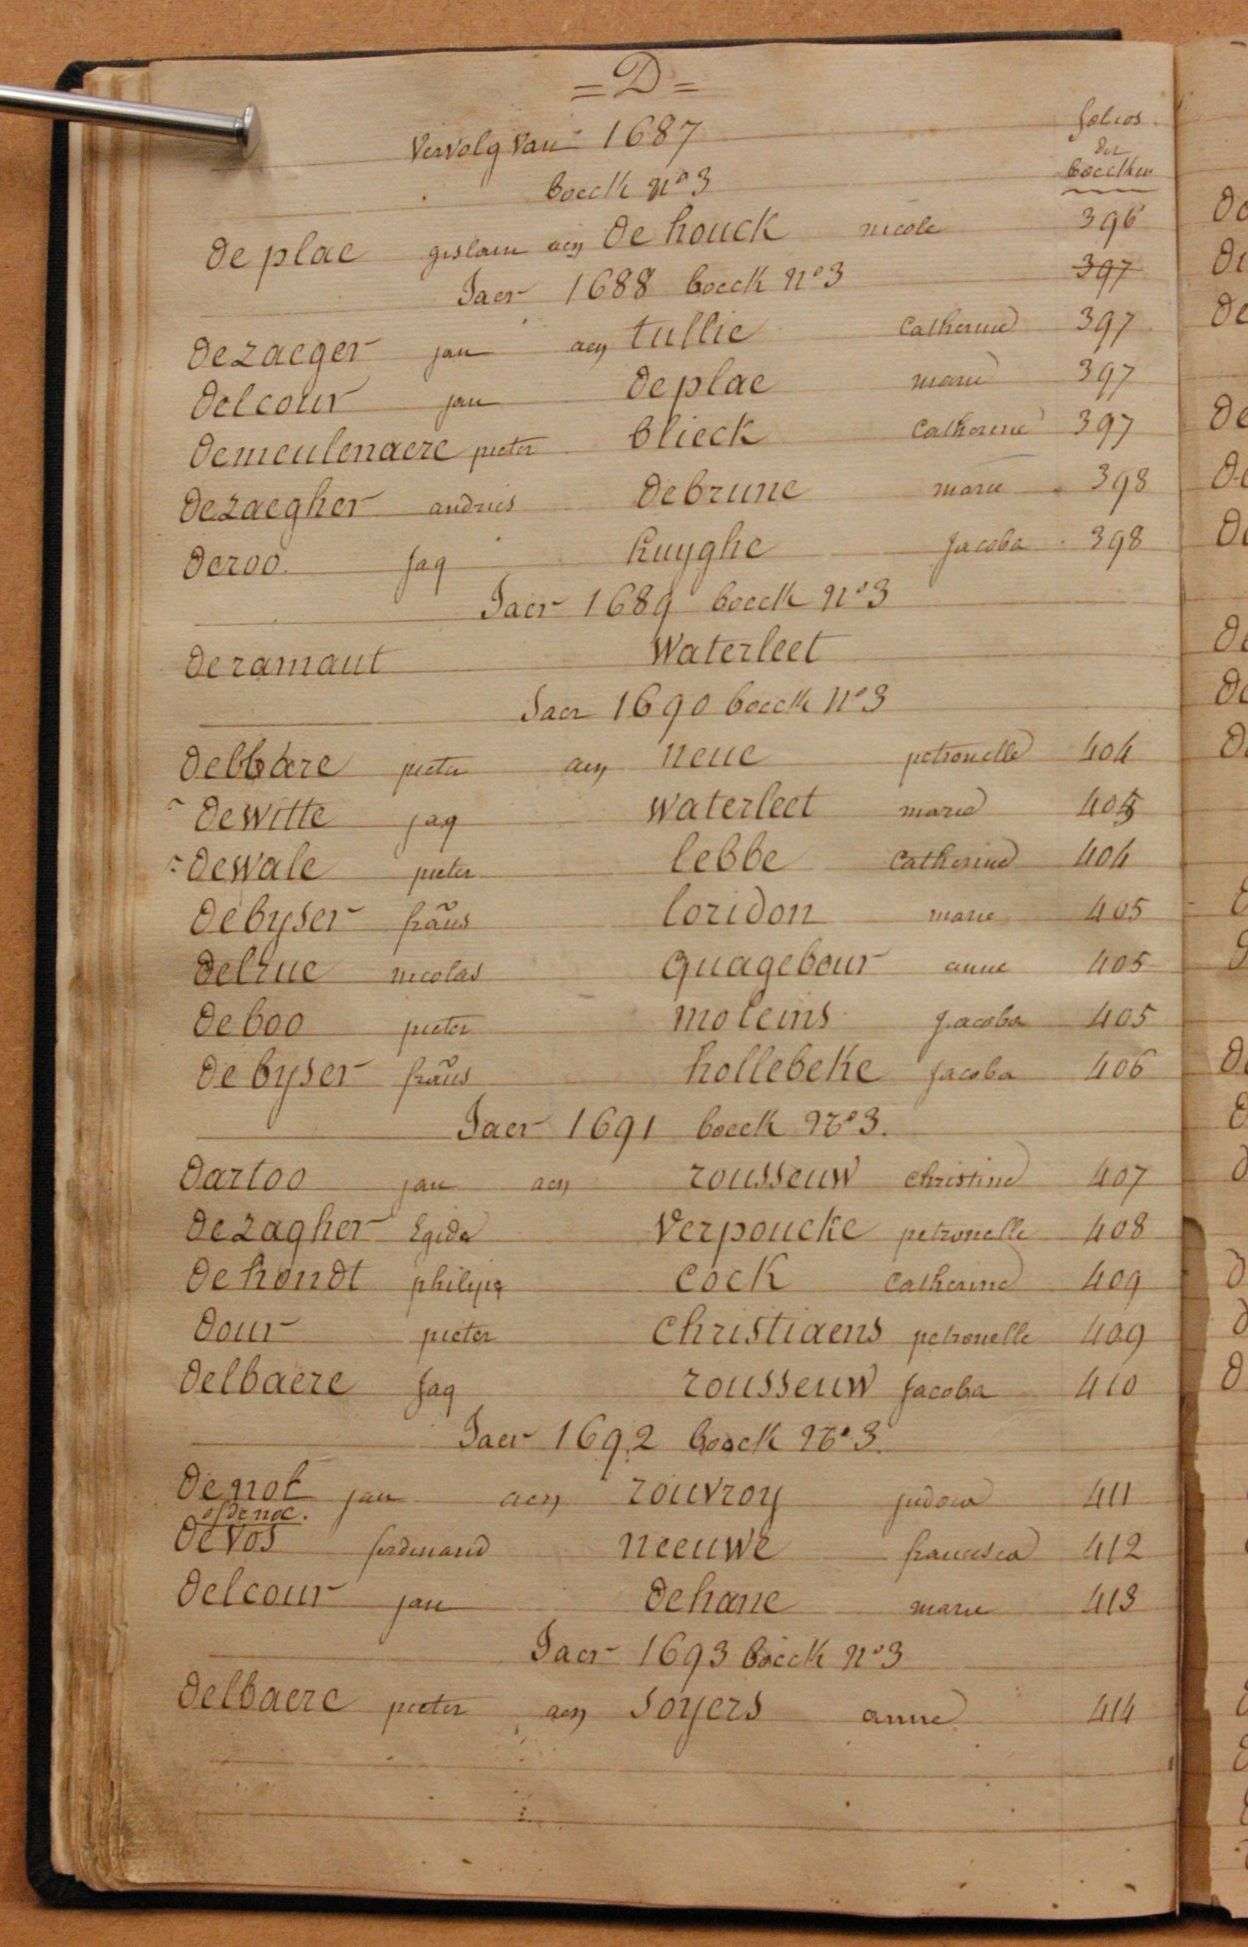 = D =
vervolg van 1687 folios
der
boeck nº 3 boecken
de plae gislain aen de houck nicole 396
Jaer 1688 boeck nº 3 397
de zaeger jan aen tullie catherine 397
delcour jan de plae marie 397
demeulenaere pieter blieck catherine 397
dezaegher andries debrune marie 398
deroo Jaq huyghe Jacoba 398
Jaer 1689 boeck nº 3
deramaut Waterleet
Jaer 1690 boeck nº 3
delbaere pieter aen neue petronelle 404
dewitte jaq waterleet marie 405
dewale pieter lebbe catherine 404
debyser frãns loridon marie 405
delrue nicolas quagebour anne 405
deboo pieter moleins jacoba 405
de byser frãns hollebeke jacoba 406
Jaer 1691 boeck Nº 3.
dartoo jan aen rousseuw christine 407
dezagher Egide Verpoucke petronelle 408
dehondt philipe cock catherine 409
dour pieter christiaens petronelle 409
delbaere Jaq rousseuw Jacoba 410
Jaer 1692 boeck Nº 3.
denot jan aen rouvroy judoca 411
ofdenoc.
devos ferdinand neeuwe francisca 412
delcour jan dehane marie 413
Jaer 1693 boeck nº 3
delbaere pieter aen soyers anne 414